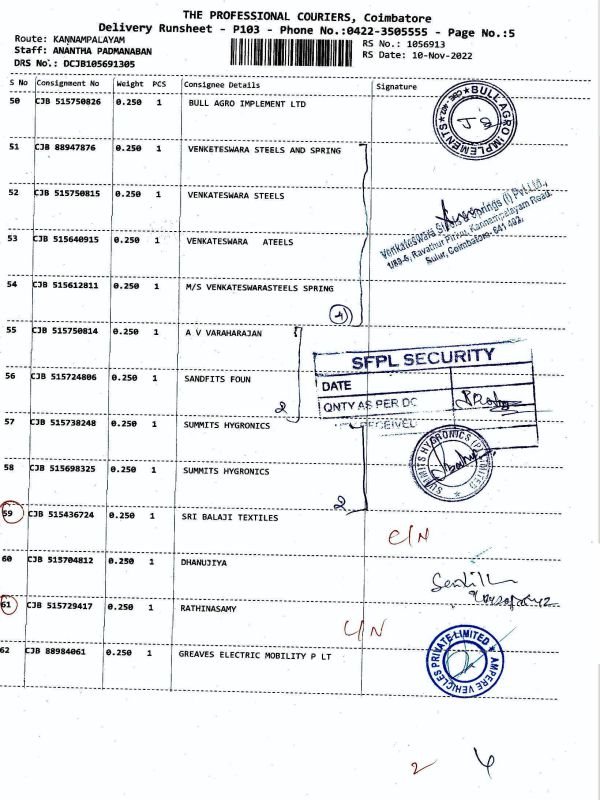 THE PROFESSIONAL COURIERS, Coimbatore
Delivery Runsheet - P103 - Phone No.:0422-3505555 - Page No.:5
Route: KANNAMPALAYAM
Staff: ANANTHA PADMANABAN
DRS No.: DCJB105691305
RS No.: 1056913
RS Date: 10-Nov-2022
S No Consignment No Weight PCS Consignee Details Signature
50 CJB 515750826 0.250 1 BULL AGRO IMPLEMENT LTD
BULL AGRO IMPLEMENTS
51 CJB 88947876 0.250 1 VENKETESWARA STEELS AND SPRING
52 CJB 515750815 0.250 1 VENKATESWARA STEELS
Venkateswara Steels & Springs (I) Pvt.Ltd.,
Ravathur Pirivu, Kannampalayam Road,
Sulur, Coimbatore- 641 402.
53 CJB 515640915 0.250 1 VENKATESWARA ATEELS
54 CJB 515612811 0.250 1 M/S VENKATESWARASTEELS SPRING
4
55 CJB 515750814 0.250 1 A V VARAHARAJAN
SFPL SECURITY
DATE
QNTY AS PER DC
RECEIVED
56 CJB 515724806 0.250 1 SANDFITS FOUN
2
57 CJB 515738248 0.250 1 SUMMITS HYGRONICS
SUMMITS HYGRONICS (P) LIMITED
58 CJB 515698325 0.250 1 SUMMITS HYGRONICS
2
59 CJB 515436724 0.250 1 SRI BALAJI TEXTILES
C/N
60 CJB 515704812 0.250 1 DHANUJIYA
61 CJB 515729417 0.250 1 RATHINASAMY
C/N
62 CJB 88984061 0.250 1 GREAVES ELECTRIC MOBILITY P LT
AMPERE VEHICLES PRIVATE LIMITED
2